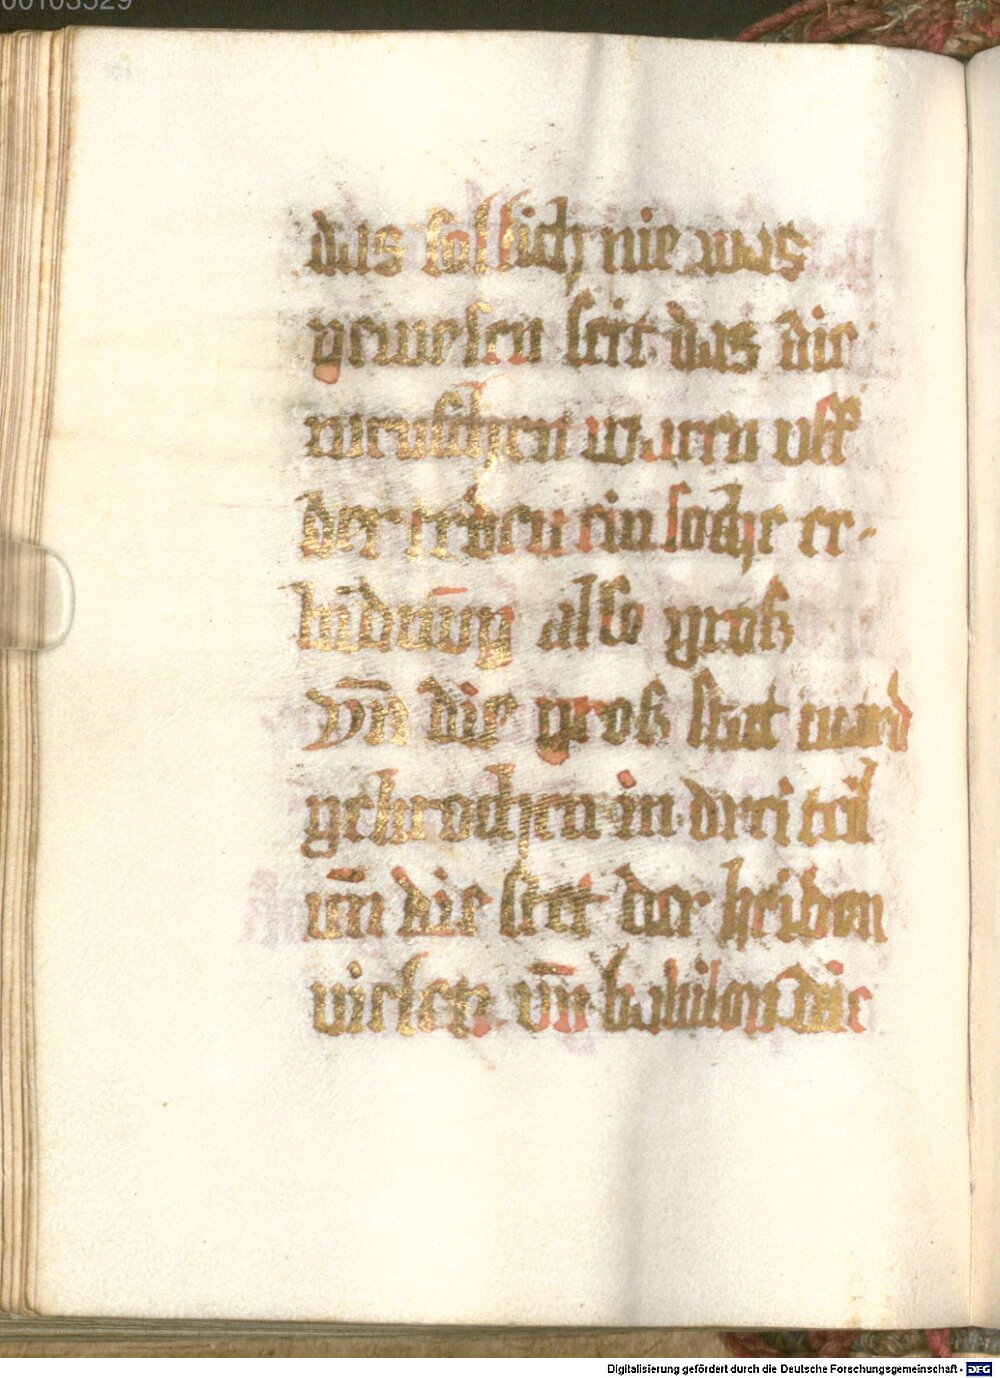 00103529
das sollich nie was
gewesen seit das die
menschen waren vff
der erden ein soche er-
bidmūg also groß
vn̄ die groß stat ward
gebrochen in drei teil
un̄ die stet der heiden
vielen vn̄ babilon die
Digitalisierung gefördert durch die Deutsche Forschungsgemeinschaft - DFG